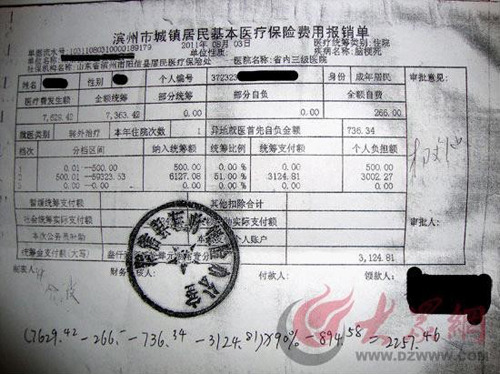 滨州市城镇居民基本医疗保险费用报销单
单据流水号:1031108031000189179 2011年 08月 03日 医疗统筹类别:住院
单位名称: 单位性质: 疾病名称:脑梗死
社保机构名称:山东省滨州市阳信县居民医疗保险处 医院名称:省内三级医院
姓名 性别 个人编号 372323 身份 成年居民 审批意见:
医疗费发生额 全额统筹 部分统筹 部分自负 全额自费
7,629.42 7,363.42 0.00 0.00 266.00
就医类别 转外治疗 本年住院次数 1 异地就医首先自负金额 736.34
档次 分档区间 纳入统筹额 统筹比例 统筹支付额 个人负担额
0.01--500.00 500.00 0.00 % 0.00 500.00
500.01--59323.53 6127.08 51.00 % 3124.81 3002.27
暂缓统筹支付额 其他扣除合计
社会统筹实际支付额 实际支付额 审批人:
本次公务员补助 个人账户
统筹金支付额(大写) 3,124.81
制表人: 财务 付款人: 领款人:
(7629.42-266.-736.34-3124.81)×90%-894.58=2257.46
大众网
WWW.DZWWW.COM